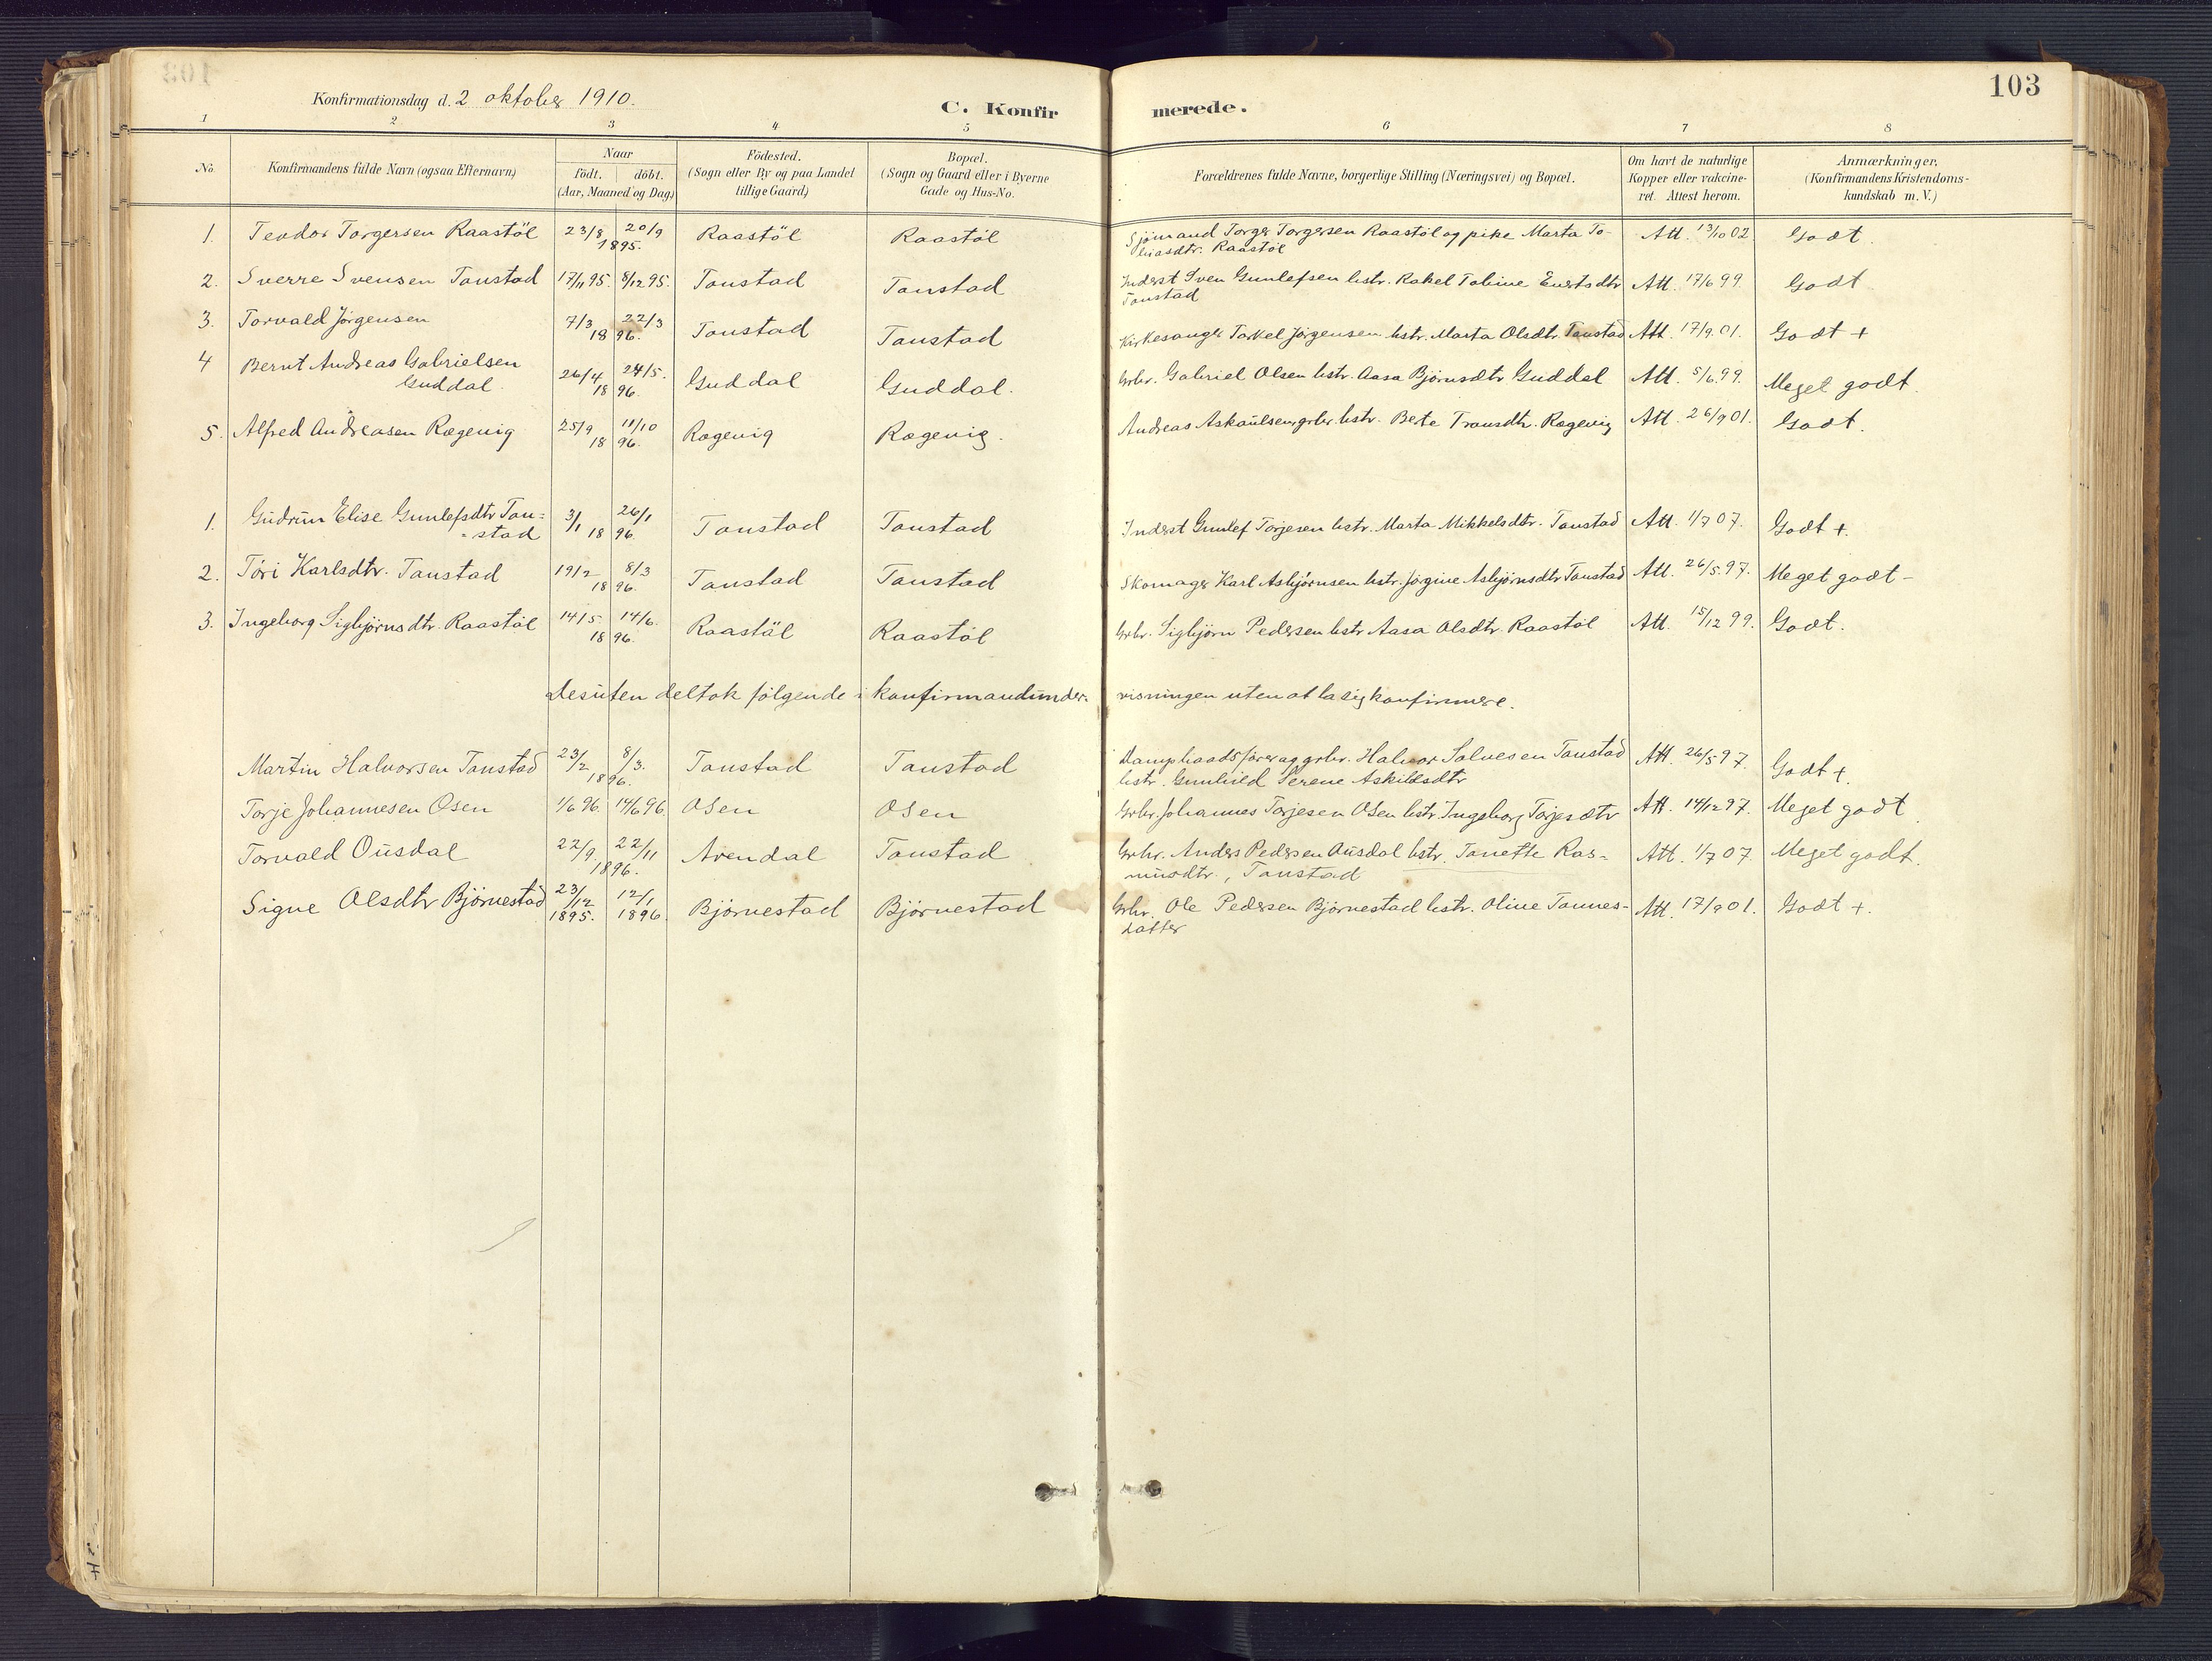 103
Konfirmationsdag d. 2 oktober 1910.
C. Konfirmerede.
1 2 3 4 5 6 7 8
No.
Konfirmandens fulde Navn (ogsaa Efternavn)
Naar
födt. döbt.
(Aar, Maaned og Dag)
Födested.
(Sogn eller By og paa Landet
tillige Gaard)
Bopæl.
(Sogn og Gaard eller i Byerne
Gade og Hus-No.
Forældrenes fulde Navne, borgerlige Stilling (Næringsvei) og Bopæl.
Om havt de naturlige
Kopper eller vakcine-
ret. Attest herom.
Anmærkninger,
(Konfirmandens Kristendoms-
kundskab m. V.)
1. Teodor Torgersen Raastöl 23/8 20/9 1895. Raastöl Raastöl Sjömand Torger Torgersen Raastöl og pike Marta To-
biasdtr. Raastöl Att. 13/10 02 Godt.
2. Sverre Svensen Taustad 17/11 95. 8/12 95. Taustad Taustad Inderst Sven Gunlefsen hstr. Rakel Tobine Evertsdtr
Taustad Att. 17/6 99. Godt
3. Torvald Jørgensen 7/3 22/3 1896. Taustad Taustad Kirkesanger Torkel Jørgensen hstr. Marta Olsdtr. Taustad Att. 17/9 01. Godt +
4 Bernt Andreas Gabrielsen
Guddal 26/4 24/5. 1896. Guddal Guddal. Grbr. Gabriel Olsen hstr. Aasa Bjørnsdtr Guddal Att. 5/6 99. Meget godt.
5. Alfred Andreasen Rægevig 25/9 11/10 1896. Rægevig Rægevig. Andreas Askaulsen, grbr. hstr. Berte Transdtr. Rægevig Att. 26/9 01. Godt.
1. Gudrun Elise Gunlefsdtr Tau=
=stad 3/1 26/1 1896. Taustad Taustad Inderst Gunlef Torjesen hstr. Marta Mikkelsdtr. Taustad Att. 1/7 07. Godt +.
2. Tóri Karlsdtr. Taustad 19/2 8/3 1896. Taustad Taustad Skomager Karl Asbjørnsen hstr. Jørgine Asbjørnsdtr Taustad Att. 26/5 97. Meget godt -
3. Ingeborg Sigbjørnsdtr. Raastöl 14/5 14/6. 1896. Raastöl Raastöl Grbr. Sigbjørn Pedersen hstr Aasa Olsdtr. Raastöl Att. 15/12 99. Godt.
Desuten deltok følgende i konfirmandunder-visningen uten at la sig konfirmere.
Martin Halvorsen Taustad 23/2 8/3. 1896. Taustad Taustad Dampbaadsfører og grbr. Halvor Salvesen Taustad
hstr. Gunhild Serene Askildsdtr Att. 26/5 97. Godt +.
Torje Johannesen Osen 1/6 96. 14/6 96. Osen Osen Grbr. Johannes Torjesen Osen hstr. Ingeborg Torjesdtr Att. 14/12 97. Meget godt.
Torvald Ousdal 22/9 22/11 1896. Arendal Taustad Grbr. Anders Pedersen Ausdal hstr. Tanette Ras-
musdtr., Taustad Att. 1/7 07. Meget godt.
Signe Olsdtr Bjørnestad 23/12 1895. 12/1 1896. Björnestad Björnestad Grbr. Ole Pedersen Björnestad hstr. Oline Tønnes-
datter Att. 17/9 01. Godt +.